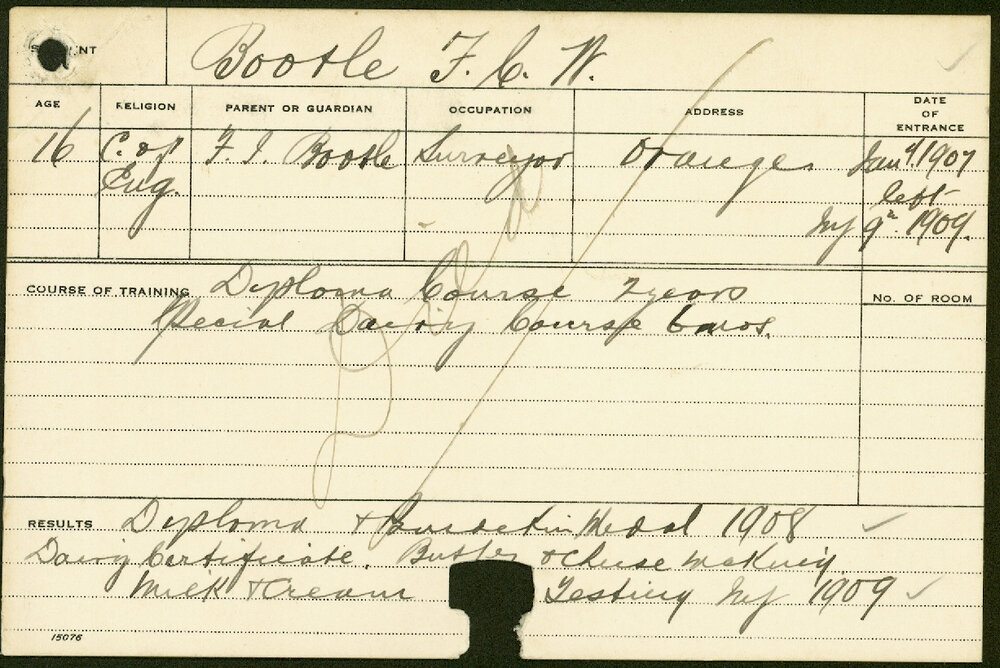 STUDENT Bootle F. C. W.
AGE RELIGION PARENT OR GUARDIAN OCCUPATION ADDRESS DATE OF ENTRANCE
16 C. of F. I. Bootle Surveyor Orange. Jany. 1907
Eng. left
9th 1909.
COURSE OF TRAINING Diploma Course 2 years No. OF ROOM
Special Dairy Course 6 mos.
RESULTS Diploma & Medal 1908
Dairy Certificate. Butter & Cheese Making
Milk & Cream Testing 1909
15076